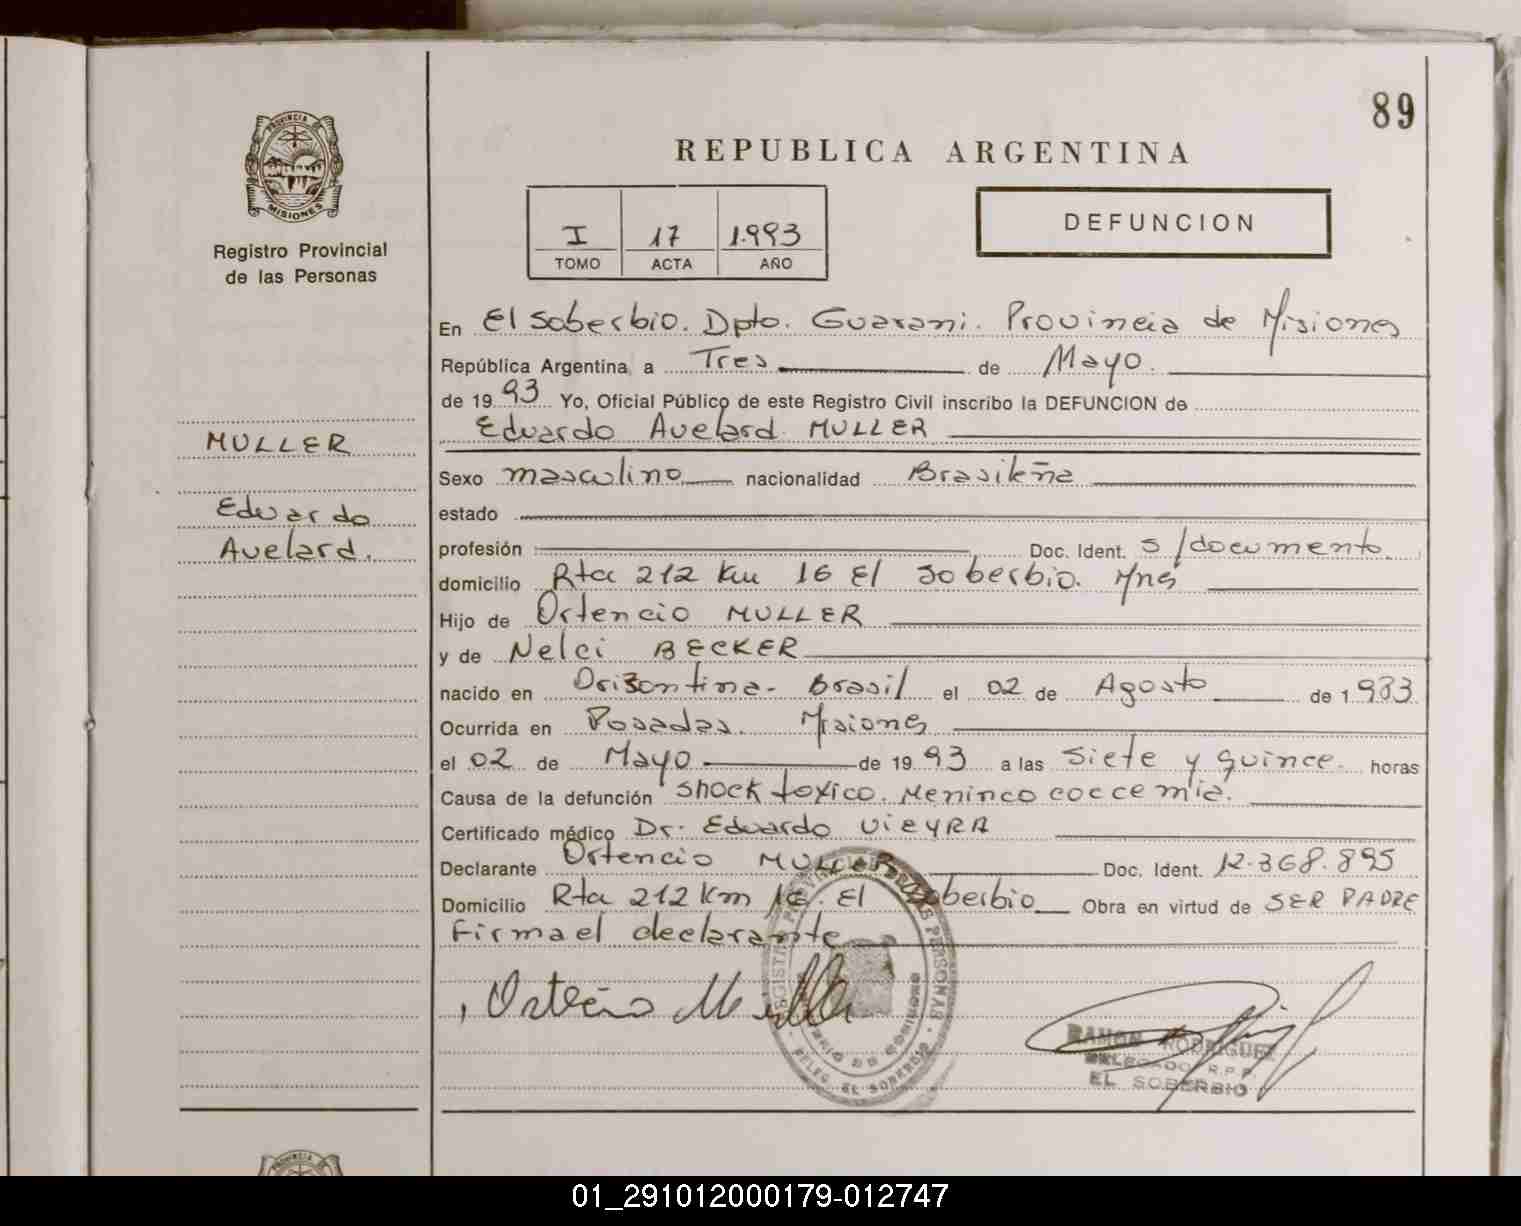 89
PROVINCIA DE
MISIONES
Registro Provincial
de las Personas
REPUBLICA ARGENTINA
I 17 1.993
TOMO ACTA AÑO
DEFUNCION
MULLER
Eduardo
Avelard.
En El Soberbio. Dpto. Guarani. Provincia de Misiones
República Argentina, a Tres de Mayo.
de 1993 Yo, Oficial Público de este Registro Civil inscribo la DEFUNCION de
Eduardo Avelard MULLER
Sexo masculino nacionalidad Brasileña
estado
profesión Doc. Ident. s/documento.
domicilio Rta 212 Km 16 El Soberbio. Mnes
Hijo de Ortencio MULLER
y de Nelci BECKER
nacido en Orisontina- Brasil el 02 de Agosto de 1983
Ocurrida en Posadas. Misiones
el 02 de Mayo de 1993 a las Siete y quince. horas
Causa de la defunción shock toxico. Meninco coccemia.
Certificado médico Dr. Eduardo VIEYRA
Declarante Ortencio MULLER Doc. Ident. 12.368.895
Domicilio Rta 212 Km 16. El Soberbio Obra en virtud de SER PADRE
Firma el declarante
Ortencio Muller
REGISTRO PROVINCIAL DE LAS PERSONAS
DELEG. EL SOBERBIO
RAMON RODRIGUEZ
DELEGADO R.P.P.
EL SOBERBIO
01_291012000179-012747